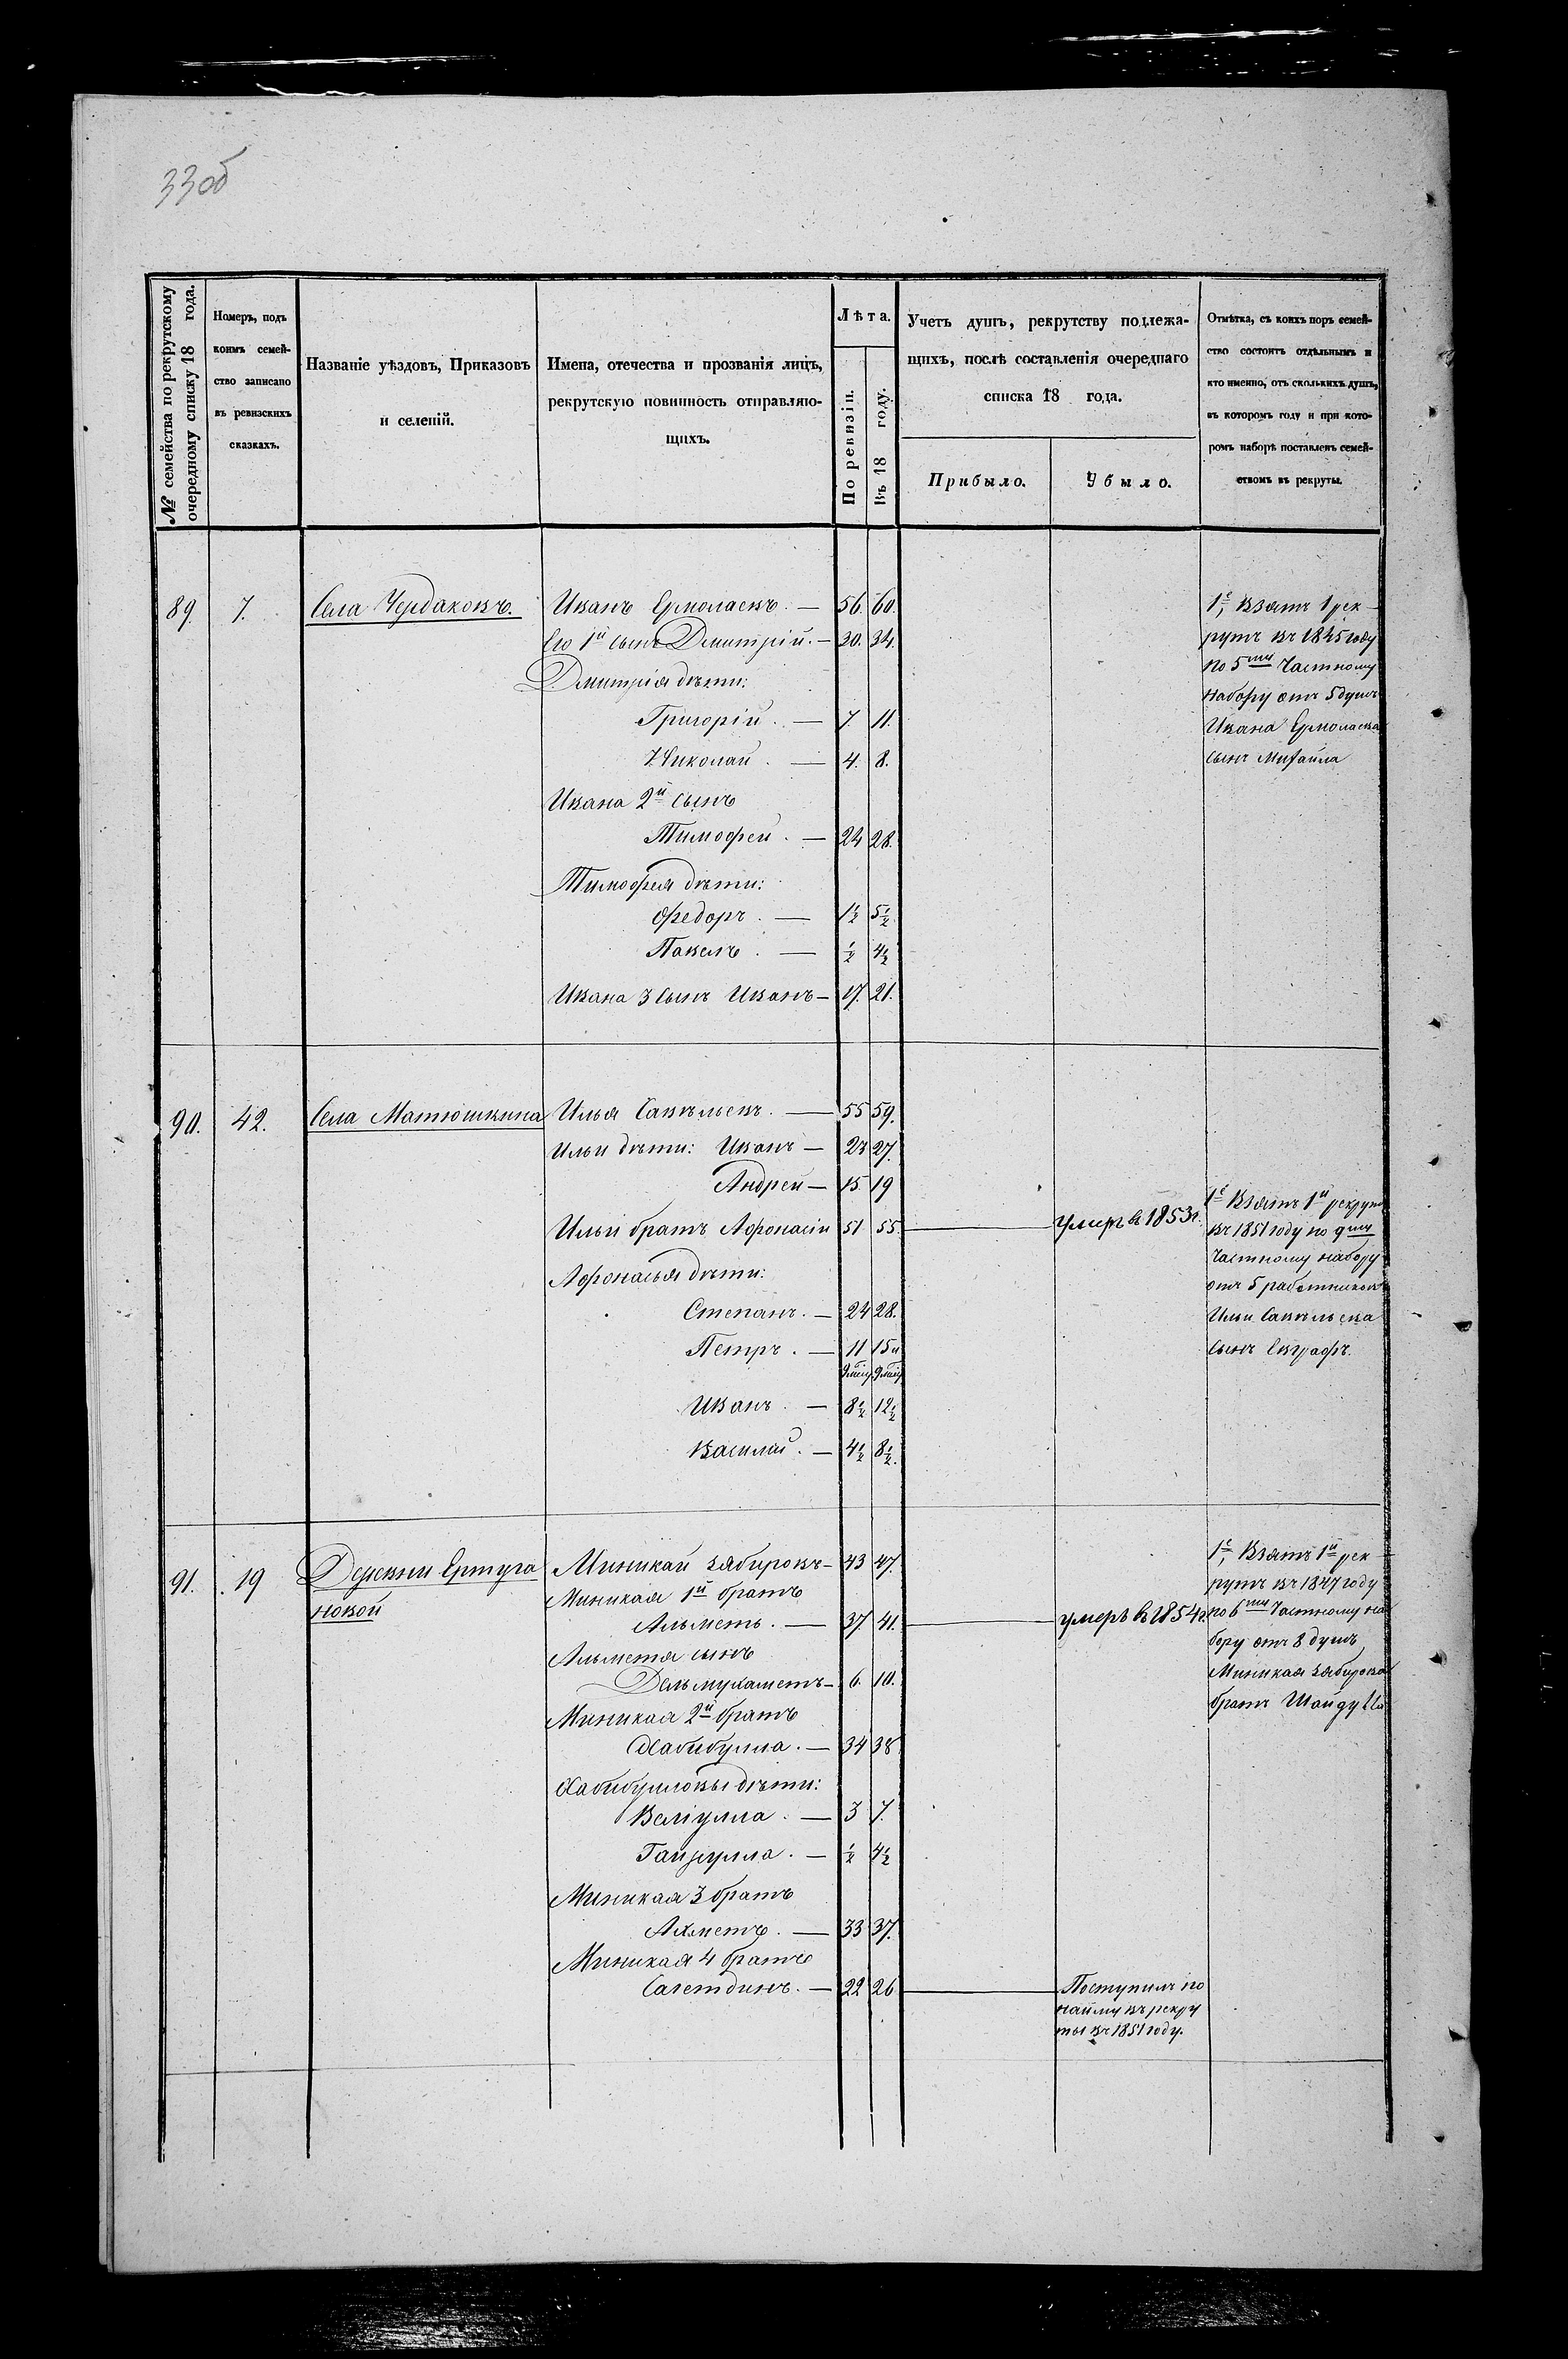 33об
№ семейства по рекрутскому
очередному списку 18 года.
Номеръ, подъ
коимъ семей-
ство записано
въ ревизскихъ
сказкахъ.
Названіе уѣздовъ, Приказовъ
и селеній.
Имена, отечества и прозванія лицъ,
рекрутскую повинность отправляю-
щихъ.
Лѣта.
По ревизіи.
Въ 18 году.
Учетъ душъ, рекрутству подлежа-
щихъ, послѣ составленія очереднаго
списка 18 года.
Прибыло.
Убыло.
Отмѣтка, съ коихъ поръ семей-
ство состоитъ отдѣльнымъ и
кто именно, отъ сколькихъ душъ,
въ которомъ году и при кото-
ромъ наборѣ поставленъ семей-
ствомъ въ рекруты.
89. 7. Села Чердаковъ. Иванъ Ермолаевъ. — 56. 60.
Его 1й сынъ Дмитрій. — 30. 34.
Дмитрія дѣти:
Григорій. — 7. 11.
Николай. — 4. 8.
Ивана 2й сынъ
Тимофей. — 24 28.
Тимофея дѣти:
Федоръ. — 1½ 5½
Павелъ. — ½ 4½
Ивана 3 сынъ Иванъ — 17. 21.
1е, Взятъ 1 рек-
рутъ въ 1845 году
по 5му Частному
набору отъ 5 душъ
Ивана Ермолаева
сынъ Михайла
90. 42. Села Матюшкина Илья Савельевъ. — 55 59.
Ильи дѣти: Иванъ — 23 27.
Андрей — 15 19
Ильи братъ Афонасій 51 55. умеръ в 1853г.
Афонасья дѣти:
Степанъ. — 24 28.
Петръ. — 11 15 и
9 мѣц 9 мѣц
Иванъ. — 8½ 12½
Василій. — 4½ 8½.
1е Взятъ 1й рекрутъ
въ 1851 году по 9му
Частному набору
отъ 5 работниковъ
Ильи Савельева
сынъ Евграфъ.
91. 19 Деревни Ертуга
новой
Миникай Зябировъ — 43 47.
Миникая 1й братъ
Альметь. — 37 41. умеръ в 1854г.
Альметя сынъ
Дельмухаметъ — 6. 10.
Миникая 2й братъ
Хабибулла. — 34 38
Хабибулловы дѣти:
Веліулла. — 3 7.
— ½ 4½
Миникая 3 братъ
Ахметъ. — 33 37.
Миникая 4 братъ
Сагетдинъ. — 22 26
Поступилъ по
найму въ рекру
ты въ 1851 году.
1е, Взятъ 1й рек-
рутъ въ 1847 году
по 6му Частному на
бору отъ 8 душъ
Миникая Зябирова
братъ Шайдулла